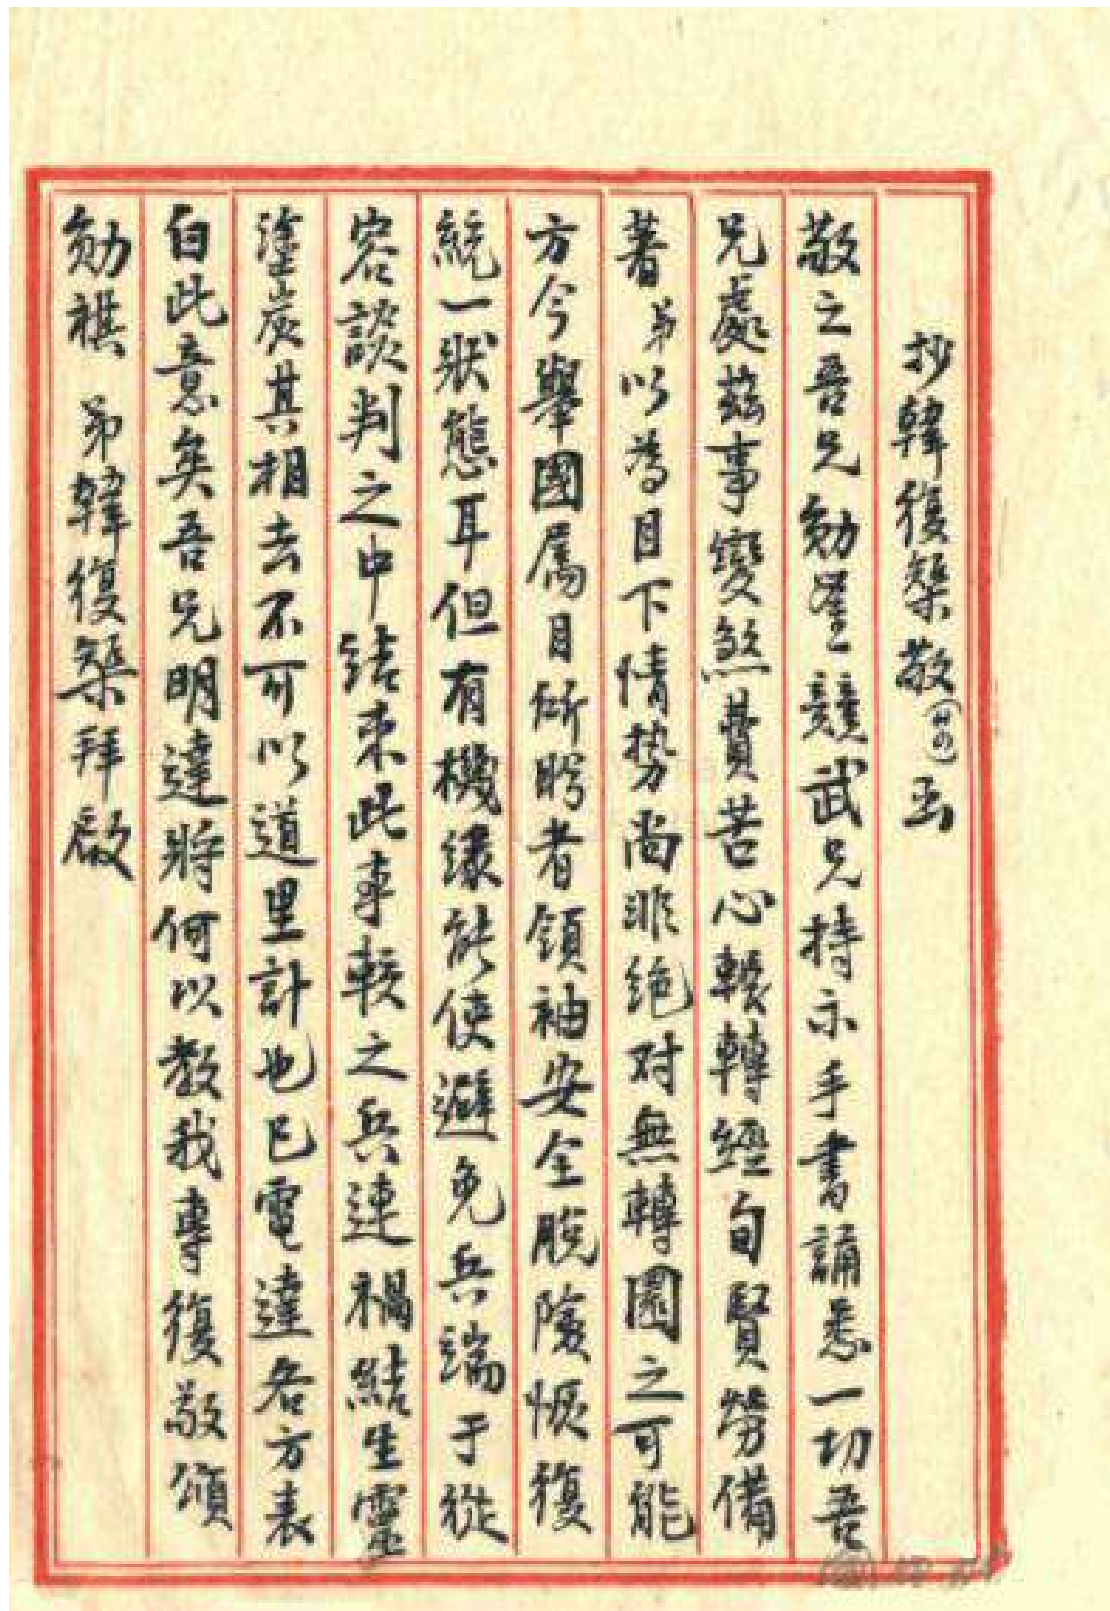 抄韓復榘敬(廿四)函
敬之吾兄勛鑒競武兄持示手書誦悉一切吾
兄處茲事變煞費苦心輾轉經旬賢勞備
著弟以為目下情势尚非絶对無轉圜之可能
方今舉國属目所盼者領袖安全脫險恢復
統一狀態耳但有機緣能使避免兵端于從
容談判之中結束此事較之兵連禍結生靈
塗炭其相去不可以道里計也已電達各方表
白此意矣吾兄明達將何以教我專復敬頌
勛祺 弟韓復榘拜啟